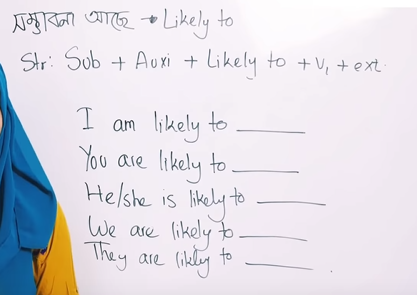 সম্ভাবনা আছে → Likely to
Str: Sub + Auxi + Likely to + V₁ + ext.
I am likely to ________
You are likely to ________
He/she is likely to ________
We are likely to ________
They are likly to ________.